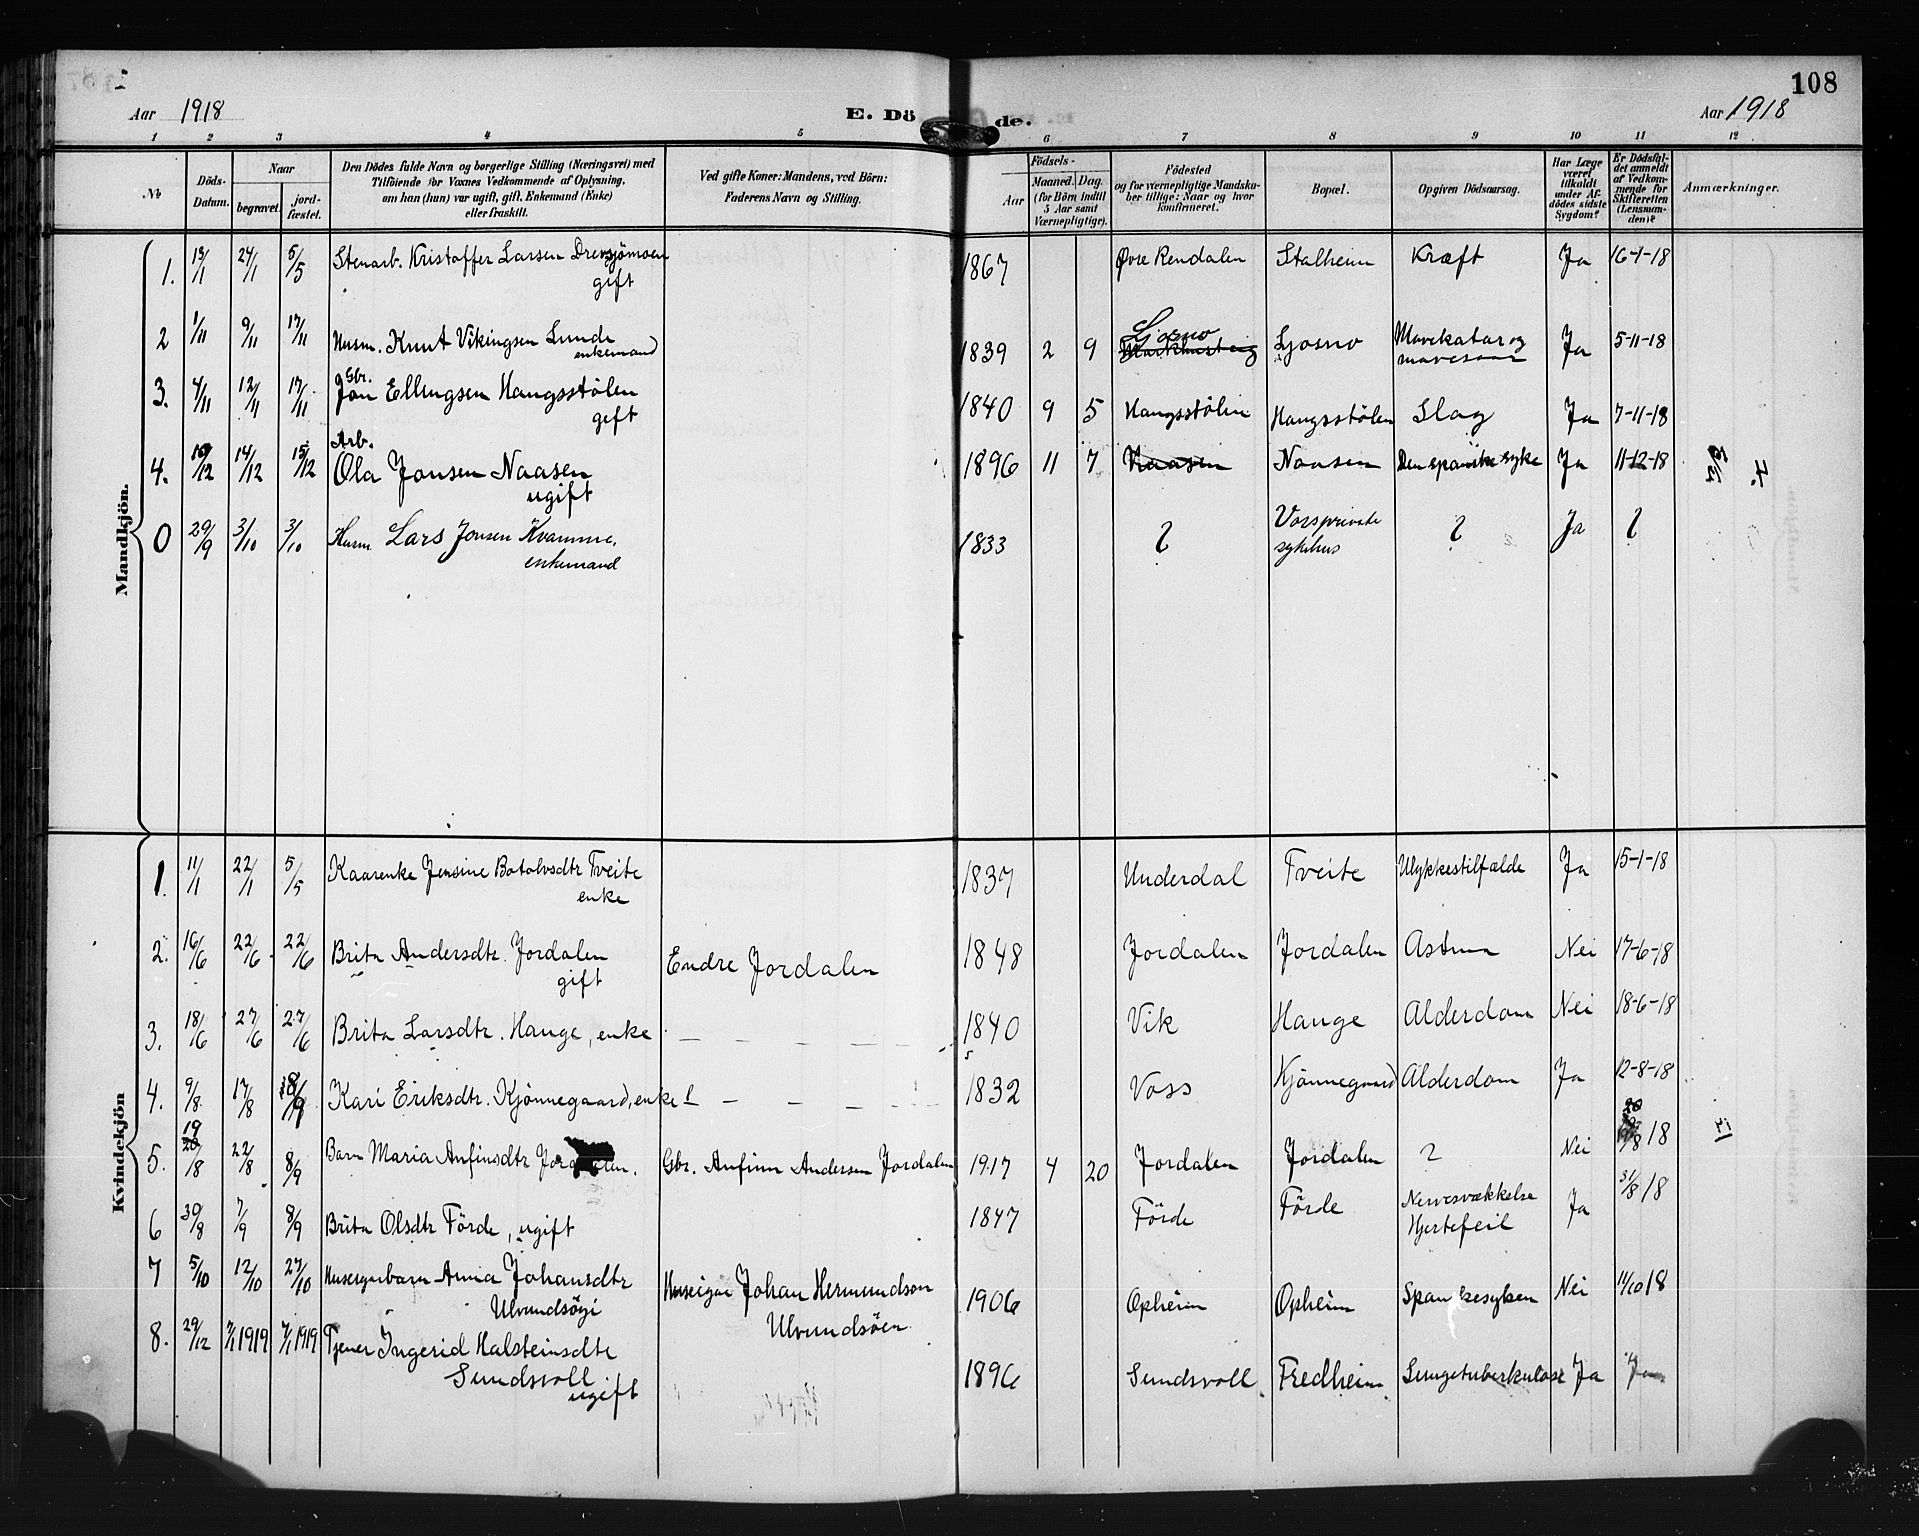 108
Aar 1918
E. Dö de.
Aar 1918
1 2 3 4 5 6 7 8 9 10 11 12
No
Döds-Datum.
Naar
begravet.
jord-fæstet.
Den Dödes fulde Navn og borgerlige Stilling (Næringsvei) med
Tilföiende for Voxnes Vedkommende af Oplysning,
om han (hun) var ugift, gift, Enkemand (Enke)
eller fraskilt.
Ved gifte Koner: Mandens, ved Börn:
Faderens Navn og Stilling.
Födsels-
Aar
Maaned. Dag.
(for Börn indtil
5 Aar samt
Værnepligtige).
Födested
og for værnepligtige Mandska-
ber tillige: Naar og hvor
konfirmeret.
Bopæl.
Opgiven Dödsaarsag.
Har Læge
været
tilkaldt
under Af-
dödes sidste
Sygdom?
Er Dödsfal-
det anmeldt
af Vedkom-
mende for
Skifteretten
(Lensman-
den)?
Anmærkninger.
Mandkjön.
1. 13/1 24/1 5/5 Stenarb. Kristoffer Larsen Drevsjömoen 1867 Øvre Rendalen Stalheim Kræft Ja 16-1-18
gift
2 1/11 9/11 17/11 Husm. Knut Vikingsen Lunde 1839 2 9 Ljosno Ljosno Mavekatar og Ja 5-11-18
enkemand mavesaar
3. 4/11 12/11 17/11 Gbr. Jon Ellingsen Haugsstölen 1840 9 5 Haugsstölen Haugsstölen Slag Ja 7-11-18
gift
Arb.
4. 10/12 14/12 15/12 Ola Jonsen Naasen 1896 11 7 Naasen Naasen Den spanske syke Ja 11-12-18
ugift
0 29/9 3/10 3/10 Husm. Lars Jonsen Kvamme, 1833 ? Vossprivate ? Ja ?
enkemand sykehus
Kvindekjön
1. 11/1 22/1 5/5 Kaarenke Jensine Botolvsdtr Tveite 1837 Underdal Tveite Ulykkestilfælde Ja 15-1-18
enke
2. 16/6 22/6 22/6 Brita Andersdtr. Jordalen Endre Jordalen 1848 Jordalen Jordalen Astma Nei 17-6-18
gift
3. 18/6 27/6 27/6 Brita Larsdtr. Hauge, enke 1840 Vik Hauge Alderdom Nei 18-6-18
4. 9/8 17/8 8/9 Kari Eriksdtr. Kjönnegaard, enke 1832 Voss Kjönnegaard Alderdom Ja 12-8-18
5. 19/8 22/8 8/9 Barn Maria Anfinsdtr Jordalen. Gbr. Anfinn Andersen Jordalen 1917 4 20 Jordalen Jordalen ? Nei 18
6 30/8 7/9 8/9 Brita Olsdtr Förde, ugift 1847 Förde Förde Nervesvækkelse Ja 31/8 18
Hjertefeil
7 5/10 12/10 27/10 Anna Johansdtr Huseigar Johan Hermundson 1906 Opheim Opheim Spanskesyken Nei 11/10 18
Ulvundsöyi Ulvundsöen
8. 29/12 7/1 1919 7/1 1919 Tjener Ingerid Halsteinsdtr 1896 Sundsvoll Fredheim Lungetuberkulose Ja Ja
Sundsvoll
ugift